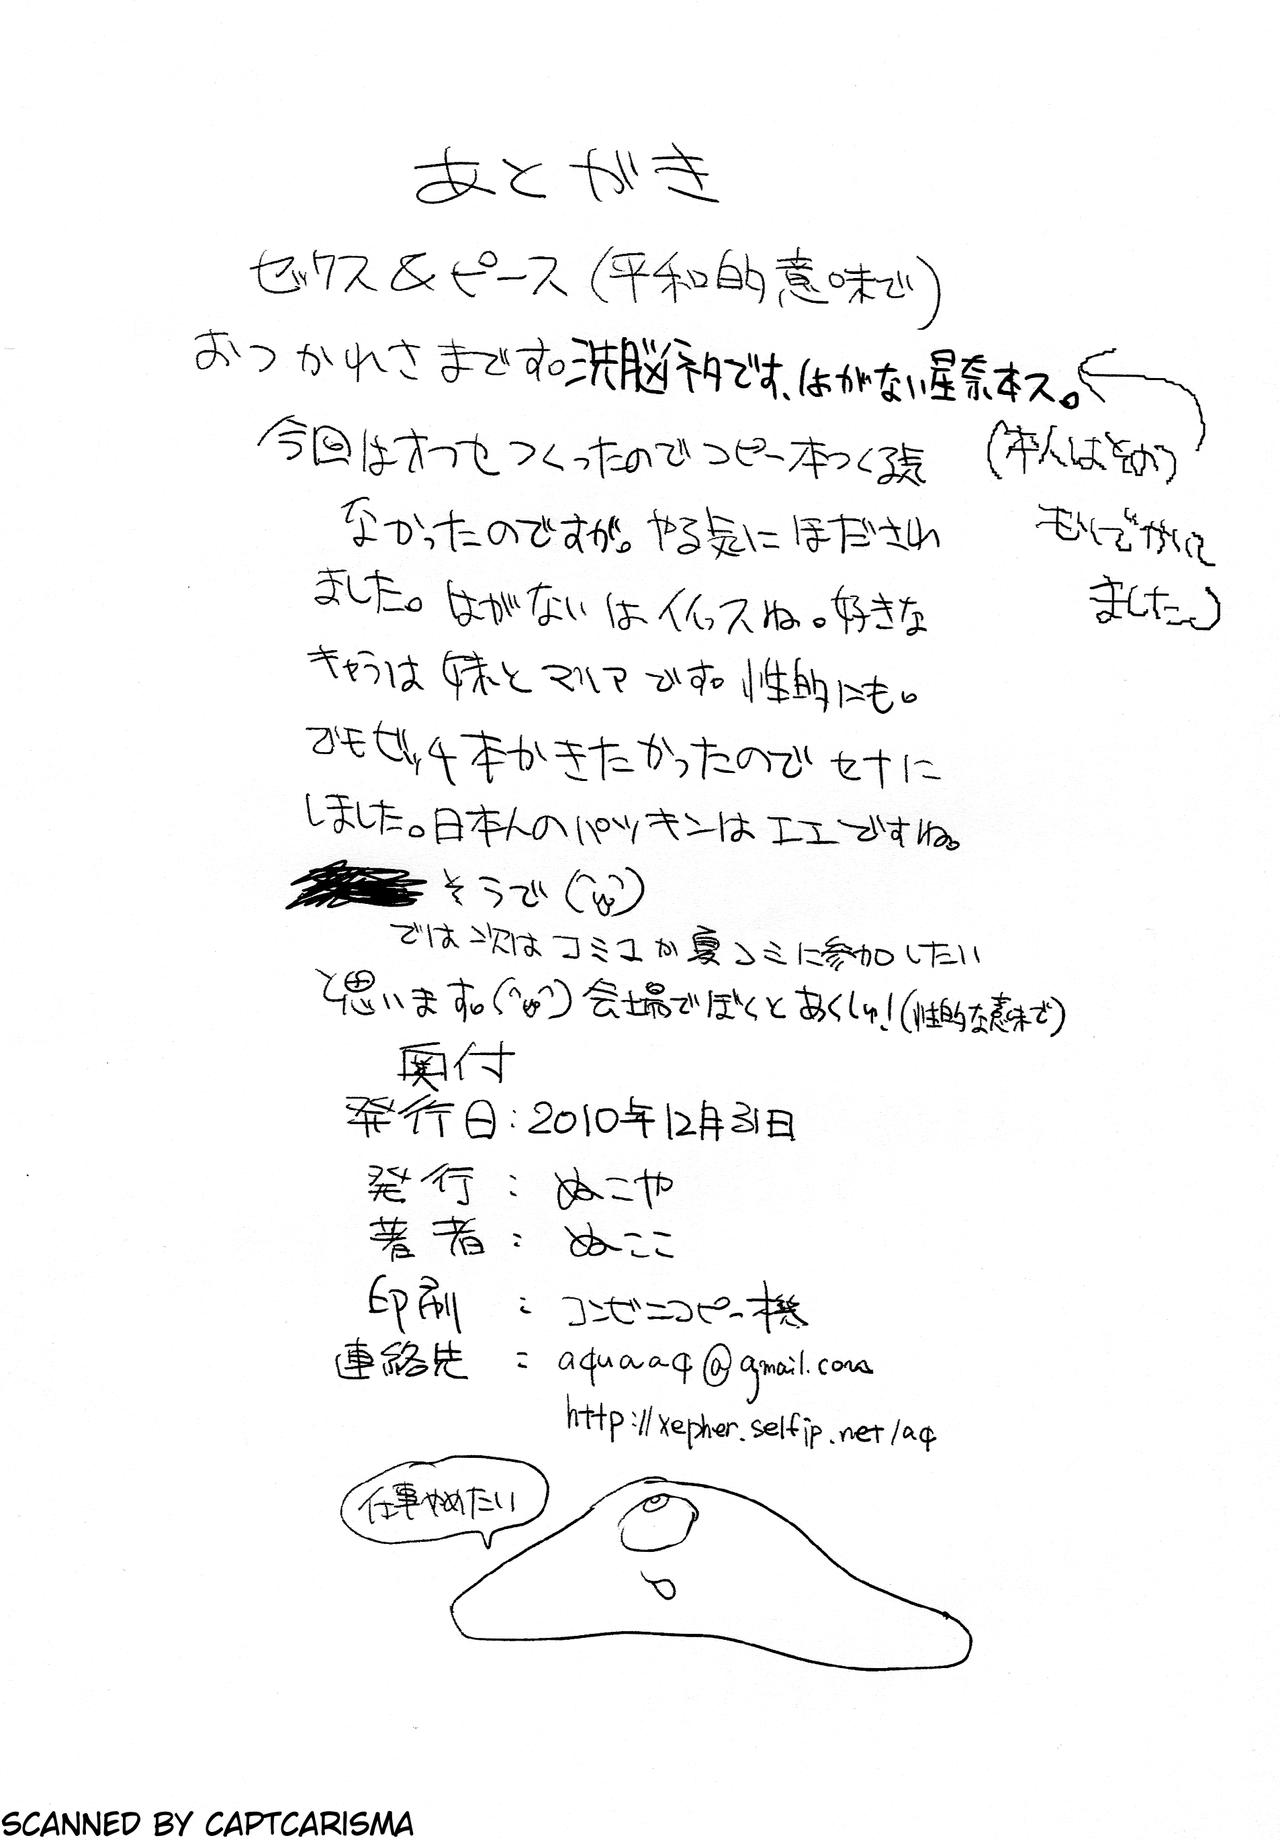 あとがき
セックス&ピース(平和的意味で)
おつかれさまです。洗脳ネタです、はがない星奈本ス。
今回はオフセつくったのでコピー本つくる気
なかったのですが。やる気にほだされ
ました。はがないはイイっスね。好きな
キャラは妹とマリアです。性的にも。
でもビッチ本かきたかったのでセナに
しました。日本人のパツキンはエエですね。
そうで
では次はコミコか夏コミに参加したい
と思います。(^ω^)会場でぼくとあくしゅ!(性的な意味で)
(本人はその
つもりでかいて
ました。)
奥付
発行日:2010年12月31日
発行:ぬこや
著者:ぬここ
印刷:コンビニコピー機
連絡先:aquaaq@gmail.com
http://xepher.selfip.net/aq
仕事やめたい
SCANNED BY CAPTCARISMA